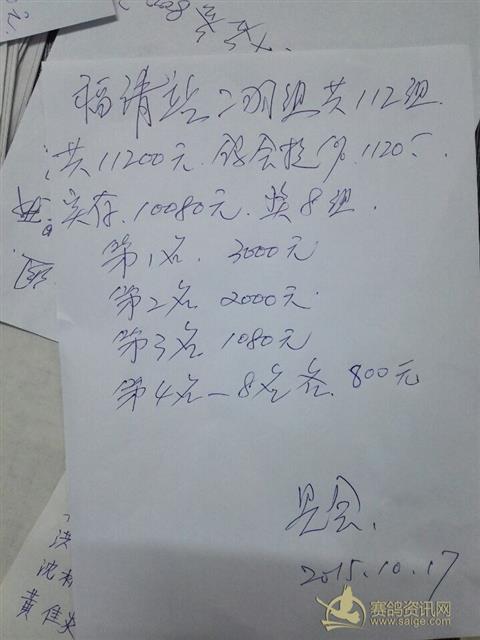 福清站二羽组共112组
共11200元.协会提10%.1120元
实存.10080元.奖8组.
第1名.3000元
第2名2000元
第3名1080元
第4名—8名各.800元
县会.
2015.10.17
沈
黄佳
赛鸽资讯网
www.saige.com